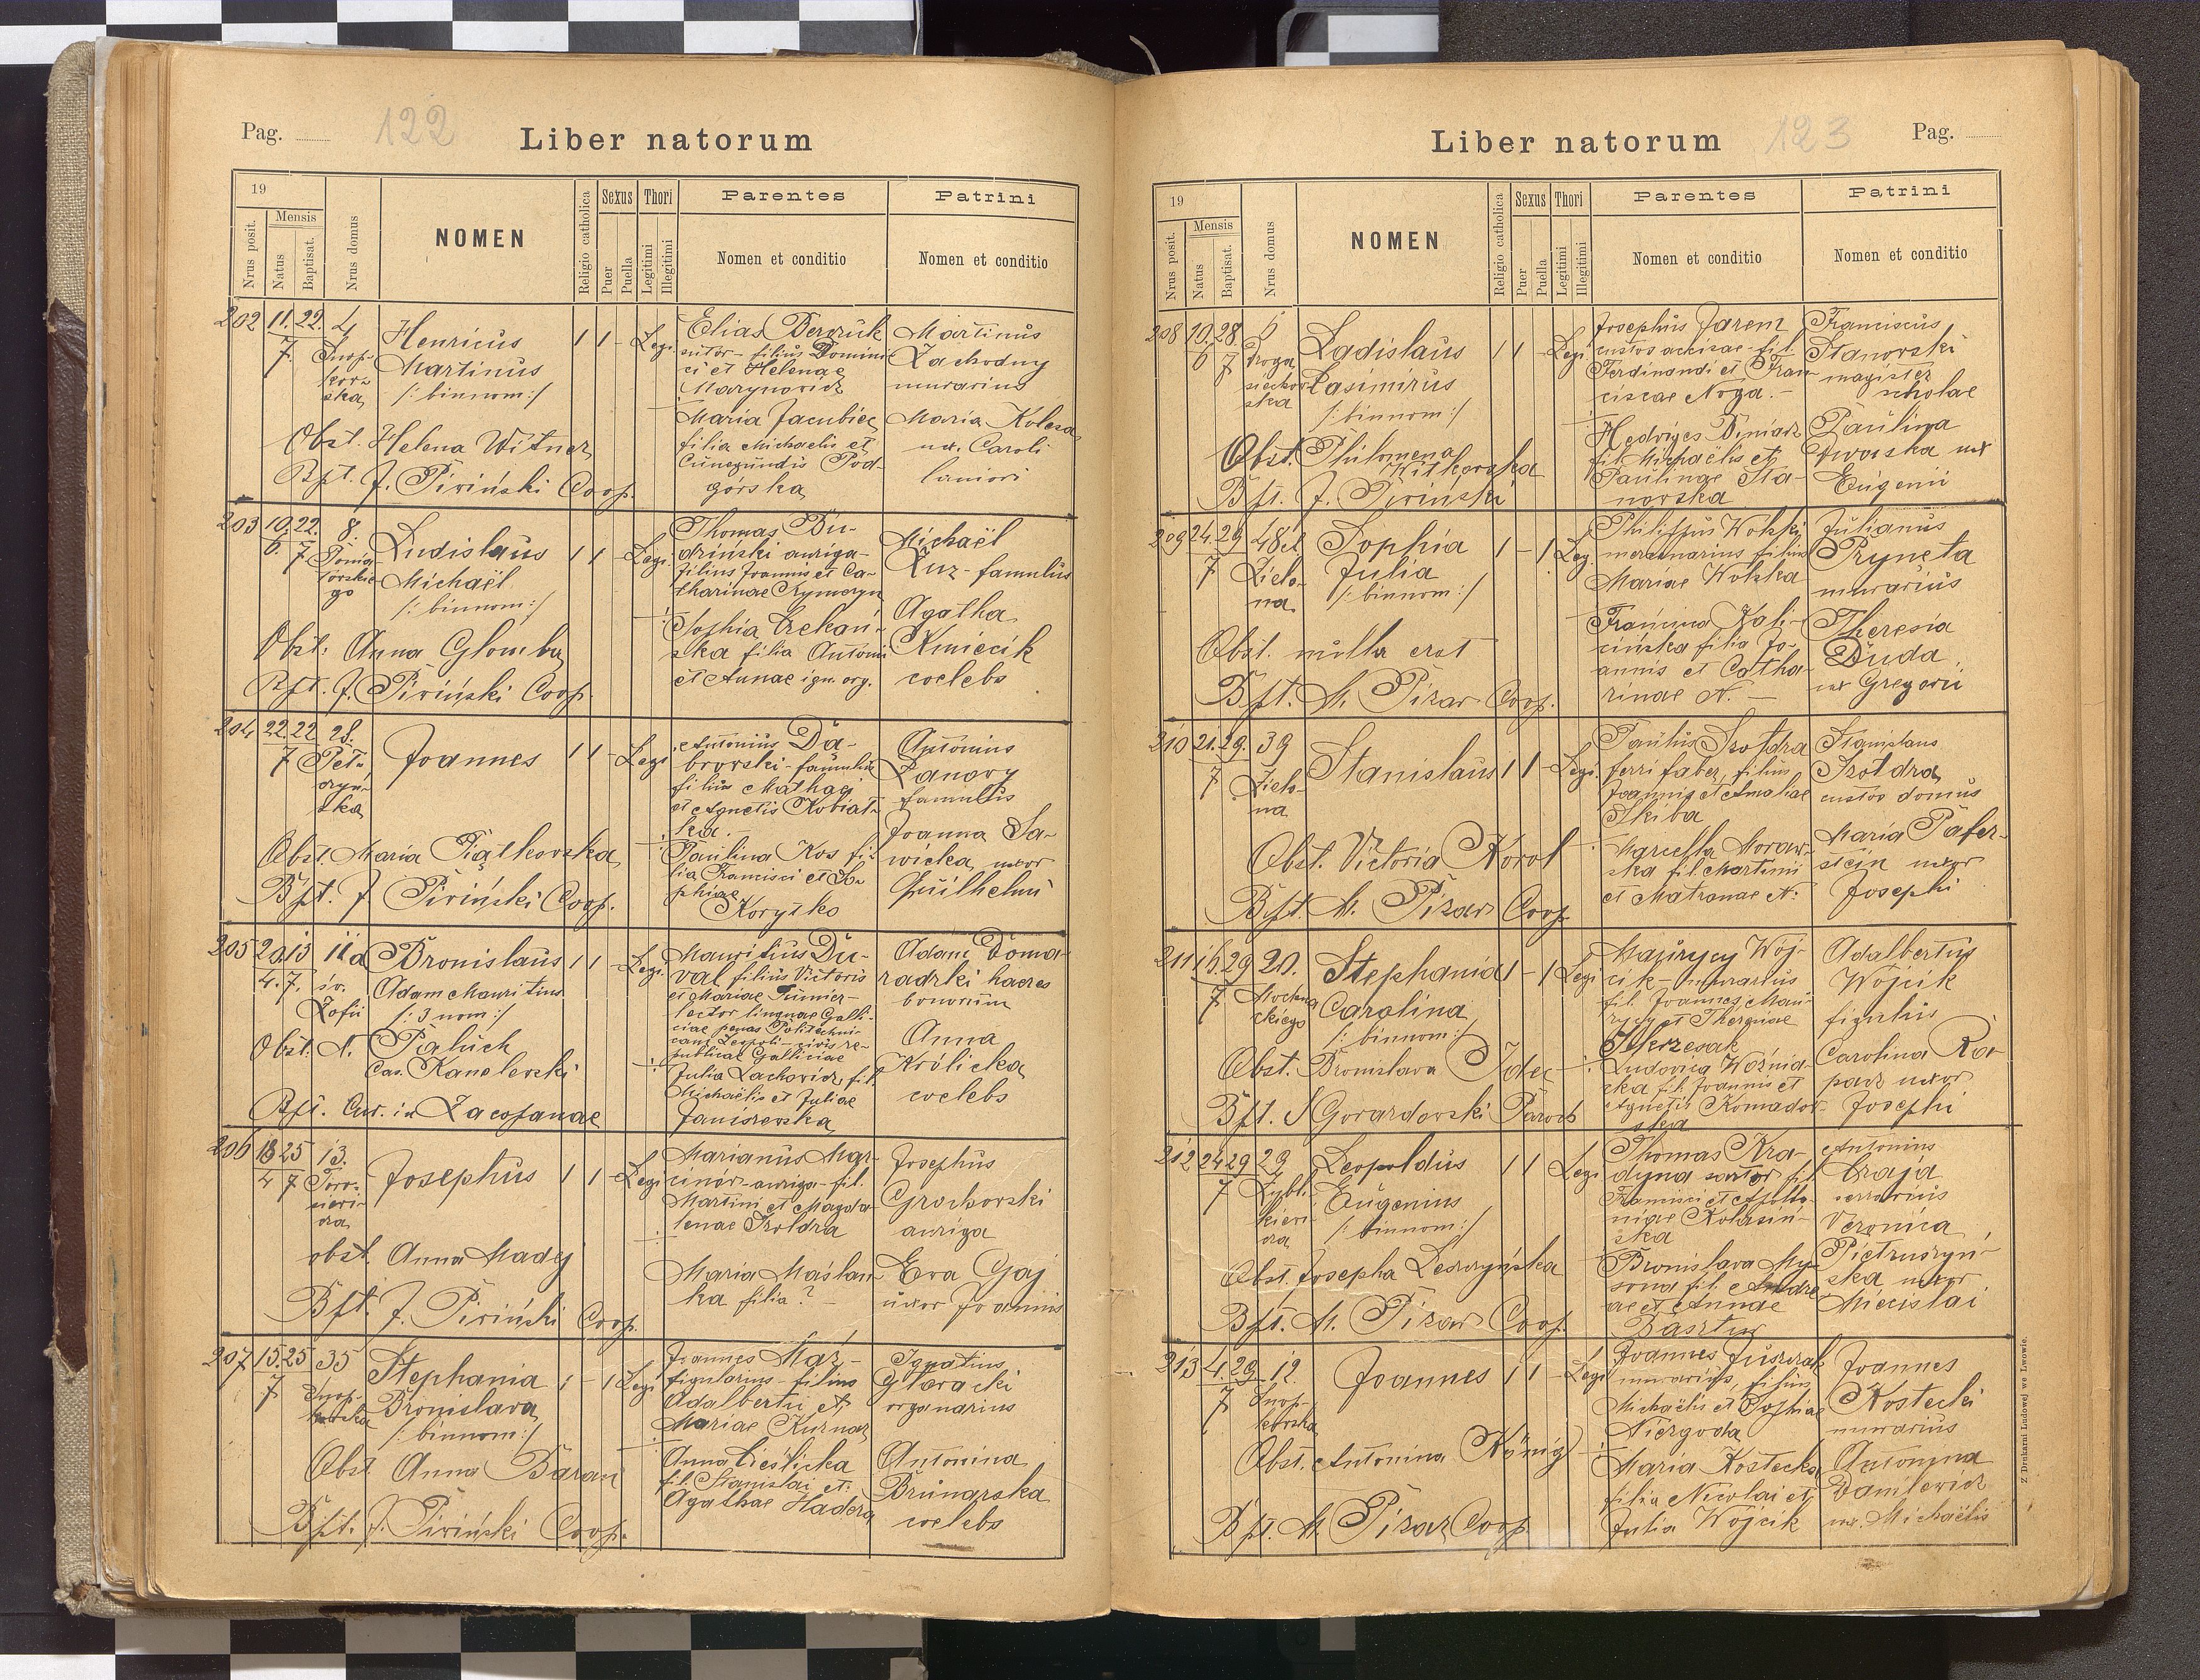 Pag. 122
Liber natorum
19
Nrus posit.
Mensis
Natus
Baptisat.
Nrus domus
NOMEN
Religio catholica
Sexus
Puer
Puella
Thori
Legitimi
Illegitimi
Parentes
Nomen et conditio
Patrini
Nomen et conditio
202 11. 22. 4 Henricus 1 1 - Legi.
7. Snop-
kow-
ska
Martinus
/: binnom:/
Obst. Helena Witner
Bpt. J. Piriński Coop.
Elias Berczuk
sutor - filius Domini-
ci et Helenae
Marynovicz
Maria Jacubiec
filia Michaelis et
Cunegundis Pod-
górska
Martinus
Zachodny
murarius
Maria Kolesa
ux. Caroli
laniori
203 10. 22. 8. Ladislaus 1 1 - Legi.
6. 7
Michaël
/: binnom:/
Obst. Anna Glomba
Bpt. J. Piriński Coop.
Thomas Bu-
driński auriga -
filius Joannis et Ca-
tharinae Rymaryn
Sophia Czekań-
ska filia Antoni
et Annae ign. org.
Michaël
Kuz - famulus
Agatha
Kmiecik
coelebs
204 22. 22 28. Joannes 1 1 - Legi
7 Pet-
aryń-
ska
Obst. Maria Piątkovska
Bpt. J. Piriński Coop.
Antonius Dą-
brovski - famulus
filius Mathaei
et Agnetis Kobiat-
ka.
Paulina Kos fi-
lia Francisci et So-
phiae
Korytko
Antonius
Lanovy
famulus
Joanna Sa-
wicka, uxor
Guilhelmi
205 20 13 11a Bronislaus 1 1 - Legi.
4. 7. św.
Zofii
Adam Mauritius
/: 3 nom:/
Obst. N. Paluch
Cas. Kanelevski
Bpt. Cur. in Zacopanae
Mauritius Du-
val filius Victoris
et Mariae
lector linguae Galli-
ciae penes Politechni-
cam Leopoli - civis re-
publicae Galliciae
Julia Lachovicz fil.
Michaëlis et Juliae
Janiszevska
Adam Doma-
radzki haeres
bonorum
Anna
Królicka
coelebs
206 13 25 13. Josephus 1 1 - Legi
4 7
Obst. Anna Madej
Bpt. J. Piriński Coop.
Marianus Mar-
cinów - auriga - fil.
Martini et Magda-
lenae Szoldra
Maria Maślan-
ka filia ? -
Josephus
Grochovski
auriga
Eva Gaj
uxor Joannis
207 15. 25 35 Stephania 1 - 1 Legi
7 Snop-
kovska
Bronislava
/: binnom:/
Obst. Anna Baran
Bpt. J. Piriński Coop.
Joannes Maź -
figularius - filius
Adalberti et
Mariae Kurnaz
Anna Cieślicka
fil. Stanislai et
Agathae Hadera
Ignatius
Głowacki
organarius
Antonina
Brunarska
coelebs
Liber natorum
123 Pag.
19
Nrus posit.
Mensis
Natus
Baptisat.
Nrus domus
NOMEN
Religio catholica
Sexus
Puer
Puella
Thori
Legitimi
Illegitimi
Parentes
Nomen et conditio
Patrini
Nomen et conditio
208 10. 28. 6 Ladislaus 1 1 - Legi
6 7 Droga
sichow-
ska
Casimirus
/: binnom:/
Obst. Philomena
Witkovska
Bpt. J. Piriński
Josephus Jarem
custos accisae - fil.
Ferdinandi et Fran-
ciscae Noga. -
Hedviges Diniarz
fil. Michaëlis et
Paulinae Sta-
novska
Franciscus
Stanovski
magister
scholae
Paulina
Dworska ux
Eugenii
209 24. 29 48 Sophia 1 - 1 Leg.
7 Zielo-
na
Julia
/: binnom:/
Obst. nulla erat
Bpt. M. Pizar Coop.
Philippus Wolski
mercenarius filius
Mariae Wolska
Francina Kali-
cińska filia Jo-
annis et Catha-
rinae N. -
Julianus
Pryneta
murarius
Theresia
Duda
ux Gregorii
210 21. 29. 39 Stanislaus 1 1 - Legi.
7 Zielo-
na
Obst. Victoria Korol
Bpt. M. Pizar Coop.
Paulus Szoldra
ferri faber, filius
Joannis et Amaliae
Skiba
Marcella Moraw-
ska fil. Martini
et Matronae N.
Stanislaus
Szoldra
custos domus
Maria Pafer-
stein uxor
Josephi
211 16. 29 20. Stephania 1 - 1 Legi
7 Mochna-
ckiego
Carolina
/: binnom:/
Obst. Bronislava Idec
Bpt. S Gorardovski Paroch
Maurycy Wój-
cik - murarius
fil. Joannes Mau-
rycy et Theresiae
Skrzesak
Ludovica Woźnia-
cka fil. Joannis et
Agnetis Komador-
ska
Adalbertus
Wójcik
figulus
Carolina Ro-
pacz uxor
Josephi
212 24 29 29 Leopoldus 1 1 Legi
7 Zybli-
kiewi-
cza
Eugenius
/: binnom:/
Obst. Josepha Leszczyńska
Bpt. M. Pizar Coop.
Thomas Kra-
dyna sartor fil.
Francisci et Apollo-
niae Kolasiń-
ska
Bronislava My-
sona fil. Andre-
ae et Annae
Basztur
Antonius
Czaja
serrarius
Veronica
Pietruszyń-
ska uxor
Miecislai
213 4. 29 12. Joannes 1 1 - Legi
7 Snop-
kovska
Obst. Antonina König
Bpt. M. Pizar Coop
Joannes Juszczak
murarius, filius
Michaëlis et Sophiae
Niezgoda
Maria Kostecka
filia Nicolai et
Julia Wójcik
Joannes
Kostecki
murarius
Antonina
Danilewicz
ux. Michaëlis
Z Drukarni Ludowej we Lwowie.